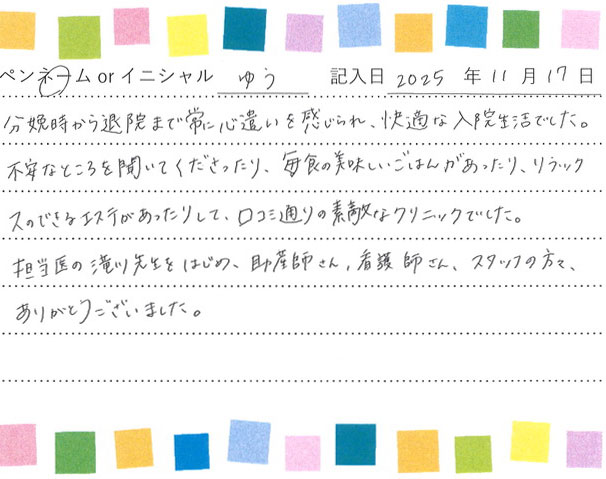 ペンネーム or イニシャル ゆう 記入日 2025 年 11 月 17 日
分娩時から退院まで常に心遣いを感じられ、快適な入院生活でした。
不安なところを聞いてくださったり、毎食の美味しいごはんがあったり、リラック
スのできるエステがあったりして、口コミ通りの素敵なクリニックでした。
担当医の滝川先生をはじめ、助産師さん、看護師さん、スタッフの方々、
ありがとうございました。